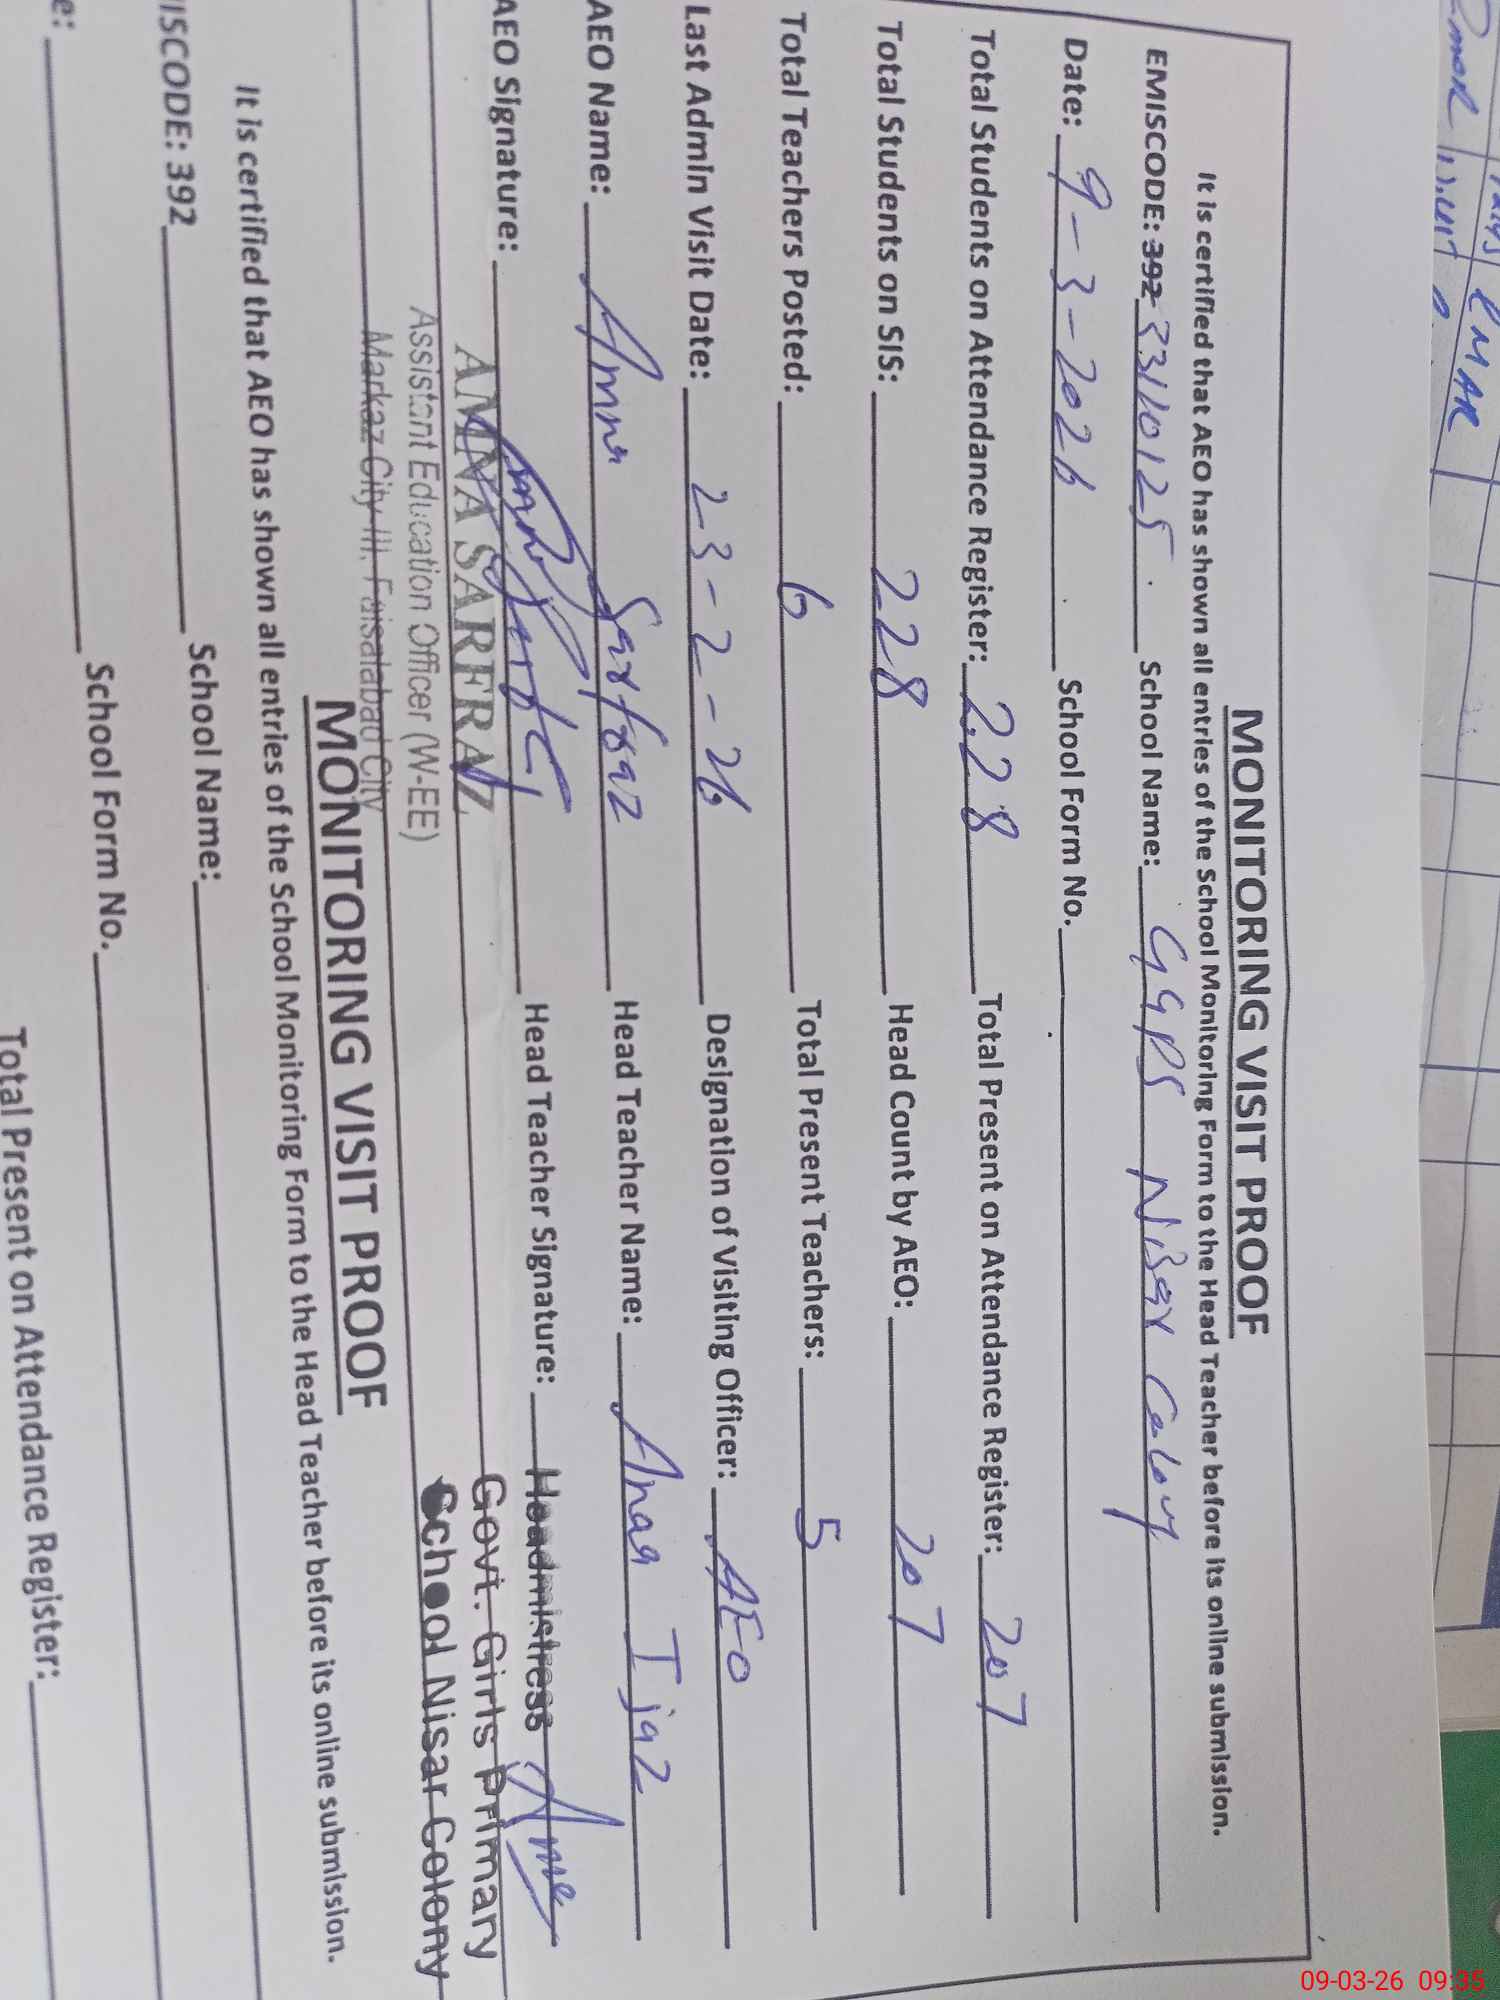 MONITORING VISIT PROOF
It is certified that AEO has shown all entries of the School Monitoring Form to the Head Teacher before its online submission.
EMISCODE: 392 33110125 School Name: GGPS Nisar Colony
Date: 9-3-2026 School Form No.
Total Students on Attendance Register: 228 Total Present on Attendance Register: 207
Total Students on SIS: 228 Head Count by AEO: 207
Total Teachers Posted: 6 Total Present Teachers: 5
Last Admin Visit Date: 23-2-26 Designation of Visiting Officer: AEO
AEO Name: Amna Sarfraz Head Teacher Name: Anaa Ijaz
AEO Signature: Head Teacher Signature:
AMINA SARFRAZ
Assistant Education Officer (W-EE)
Markaz City III, Faisalabad City
Headmistress
Govt. Girls Primary
School Nisar Colony
MONITORING VISIT PROOF
It is certified that AEO has shown all entries of the School Monitoring Form to the Head Teacher before its online submission.
ISCODE: 392 School Name:
e: School Form No.
Total Present on Attendance Register:
09-03-26 09:35